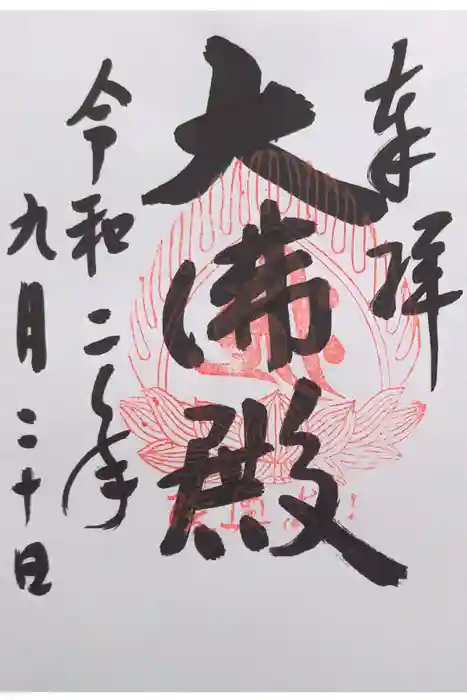 奉拝
大佛殿
令和二年
九月二十日